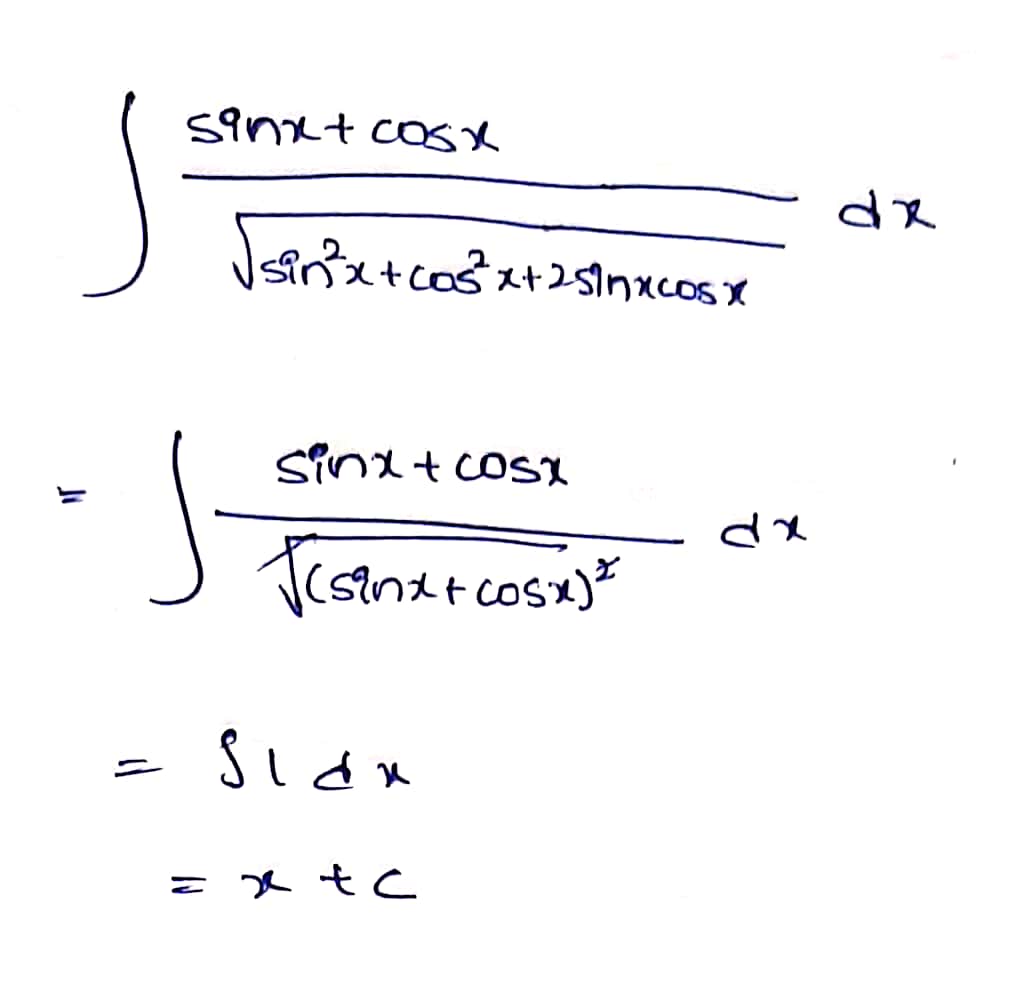 ∫ (sinx + cosx) / √(sin²x + cos²x + 2sinxcosx) dx
= ∫ (sinx + cosx) / √(sinx + cosx)² dx
= ∫ 1 dx
= x + c